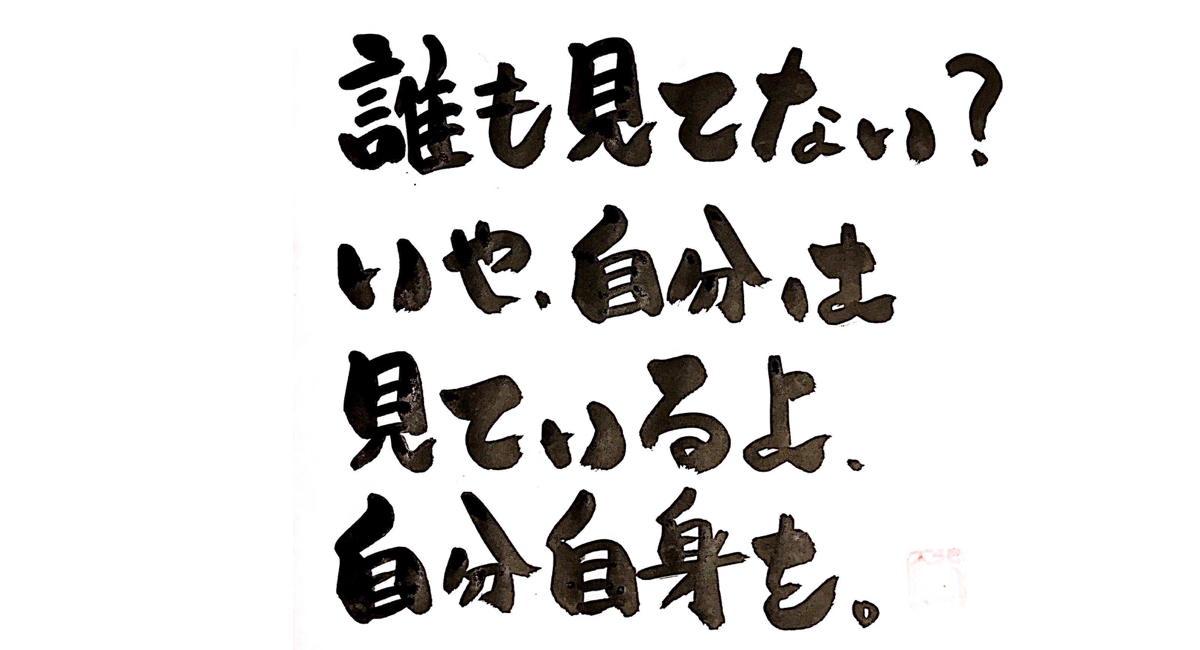 誰も見てない?
いや、自分は
見ているよ、
自分自身を。